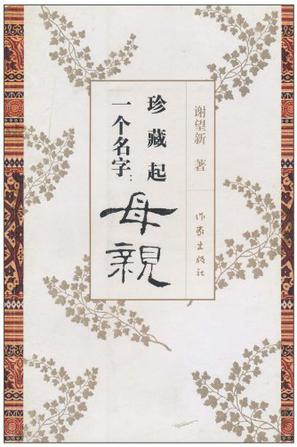 珍藏起
一个名字：
母親
谢望新 著
作家出版社